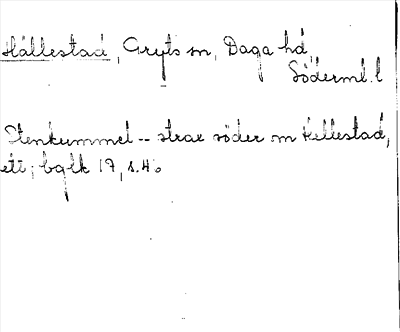 Hållestad, Gryts sn, Daga hd,
Söderml. l
Stenkummel -- strax söder om Hellestad,
ett; bglk 17, s. 46